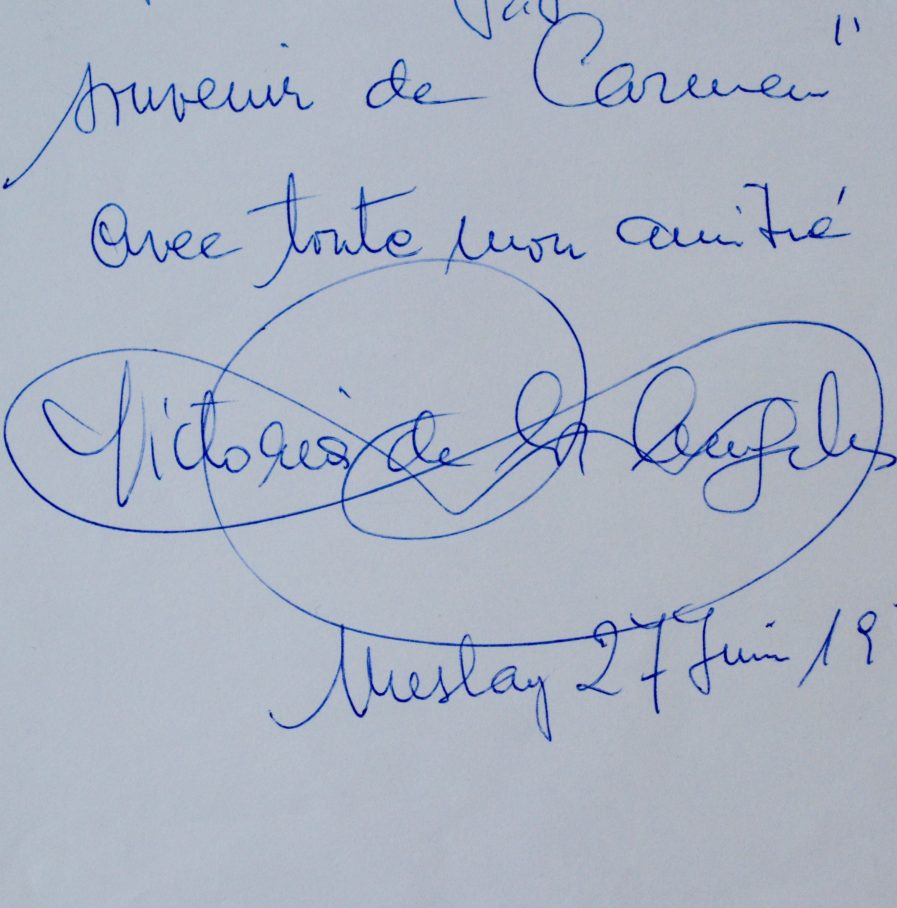 souvenir de Carmen"
avec toute mon amitié
Victoria de los Angeles
Meslay 27 Juin 19